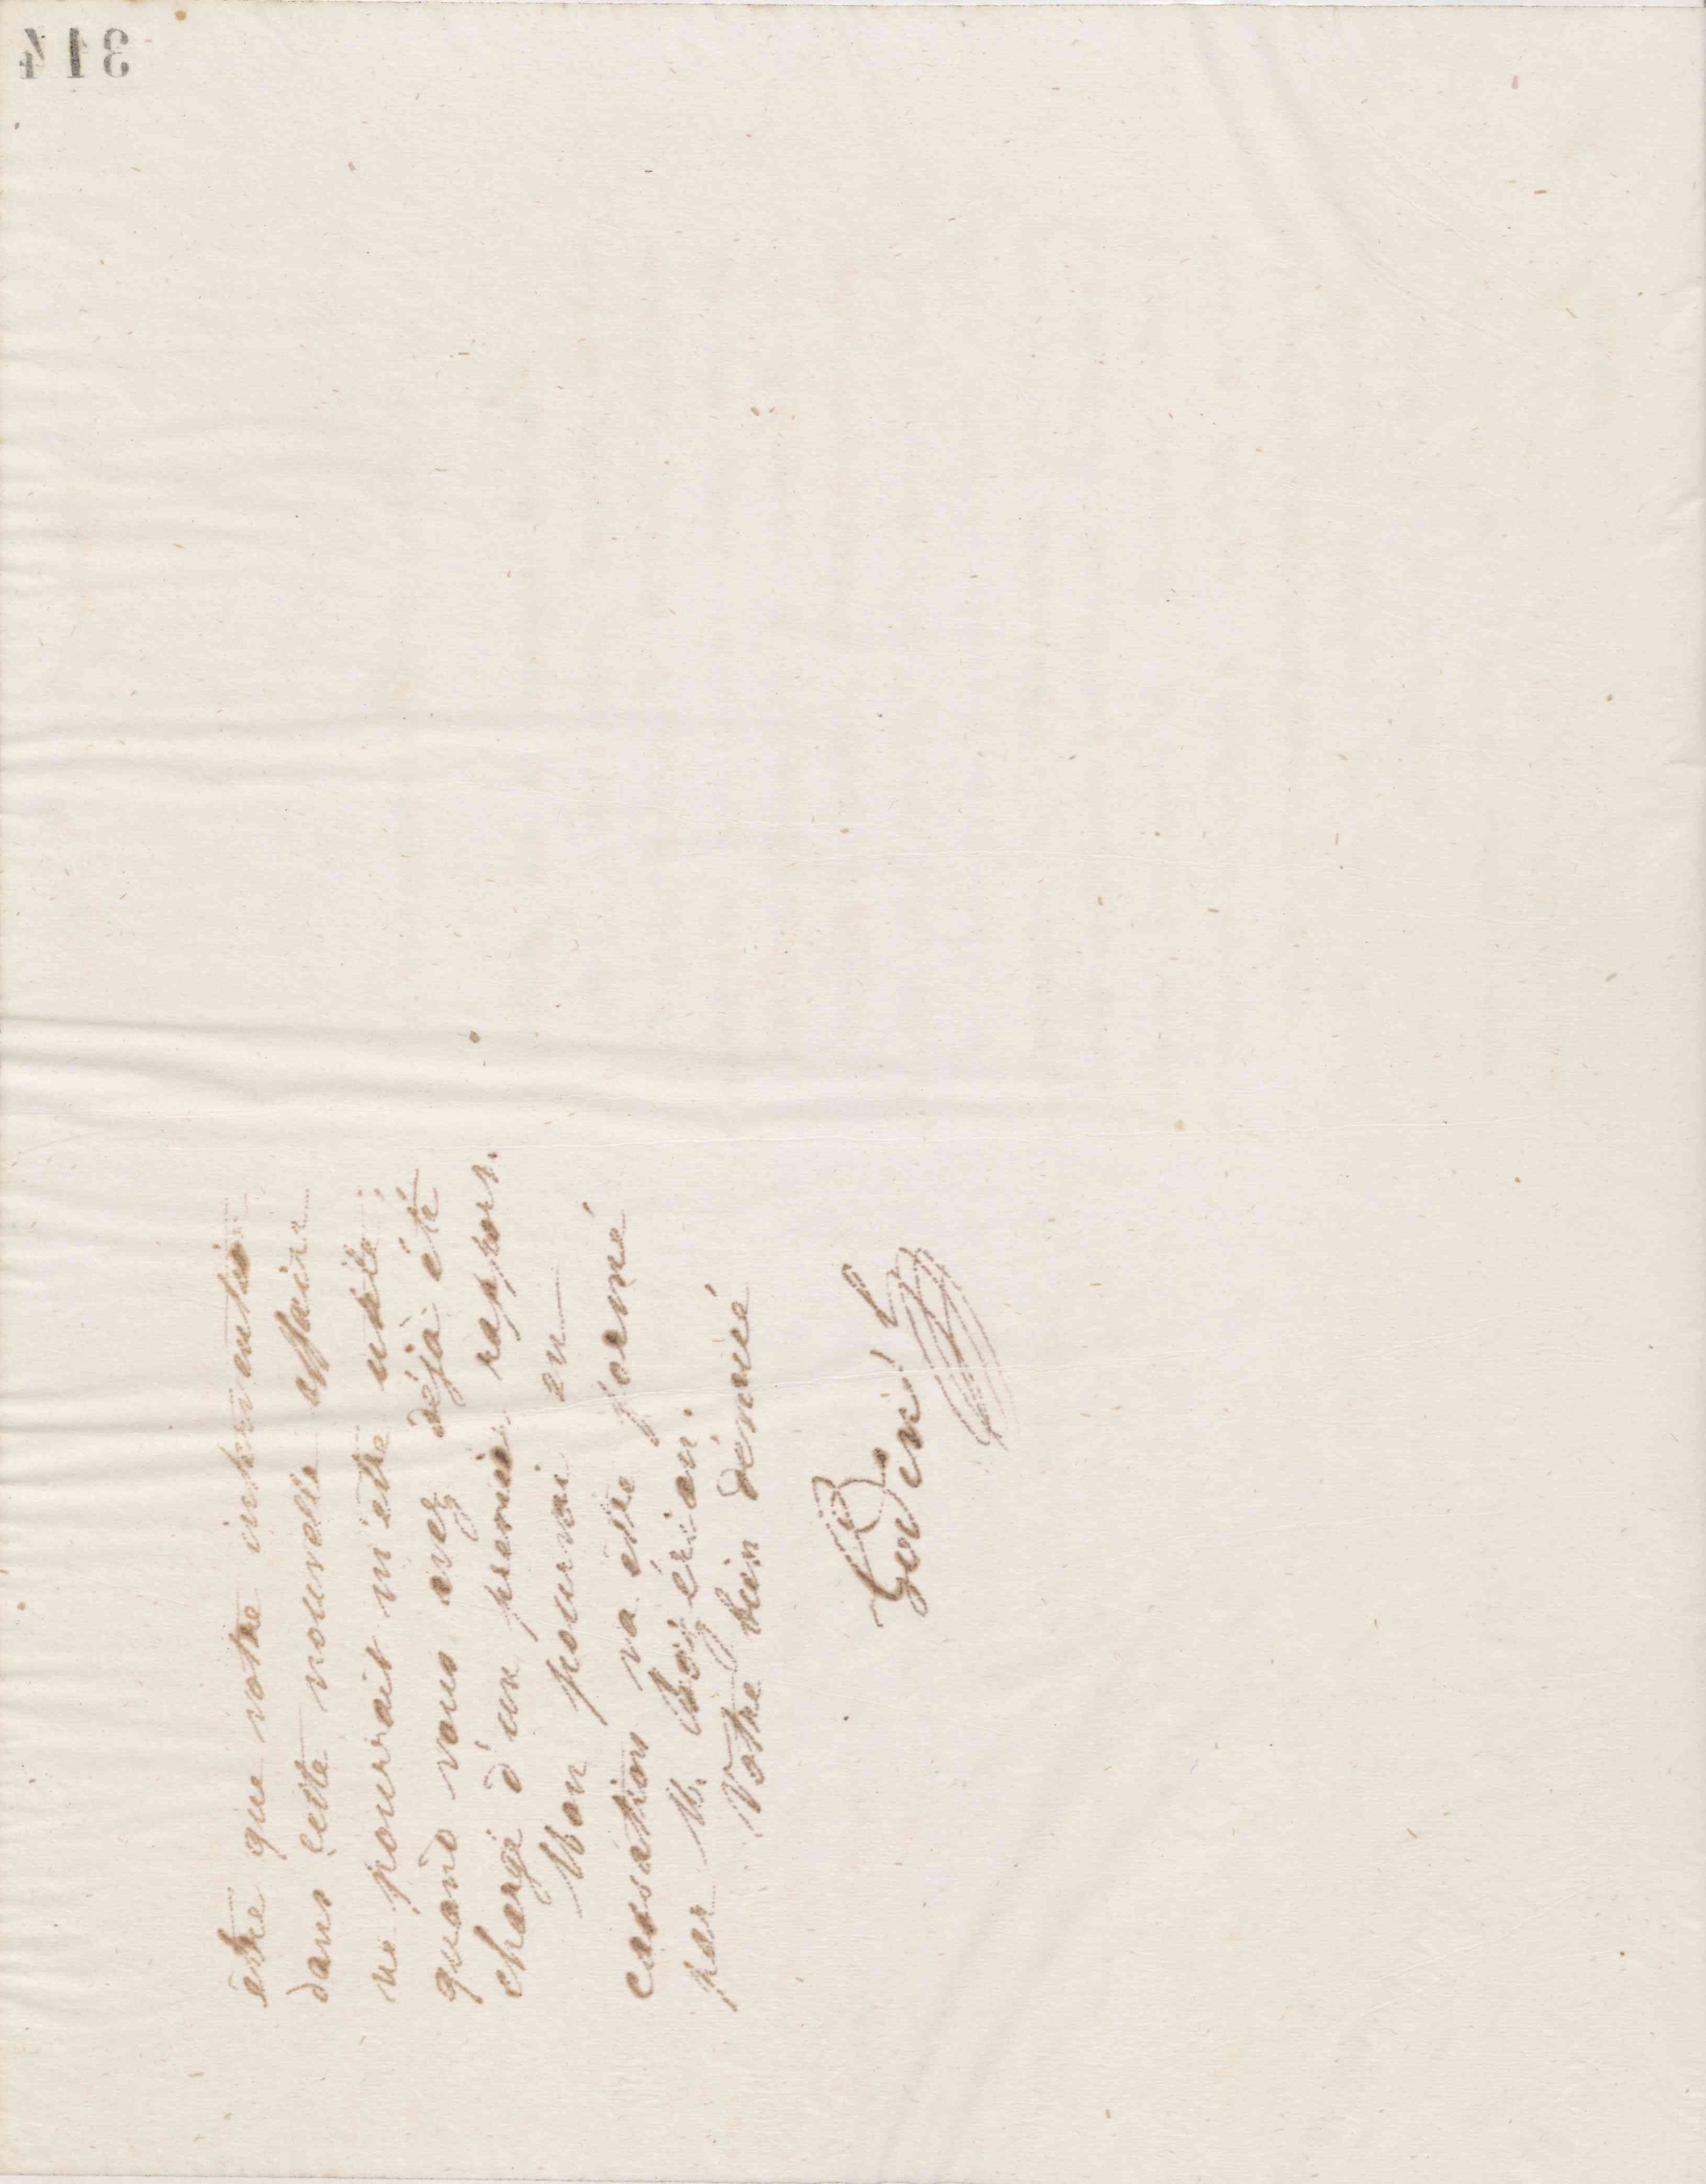 314
être que votre intervention
dans cette nouvelle affaire
ne pourrait m'être utile
quand vous avez déjà été
chargé d'un premier rapport.
Mon pourvoi en
cassation va être formé
par M. Bozérian.
Votre bien dévoué
Godin